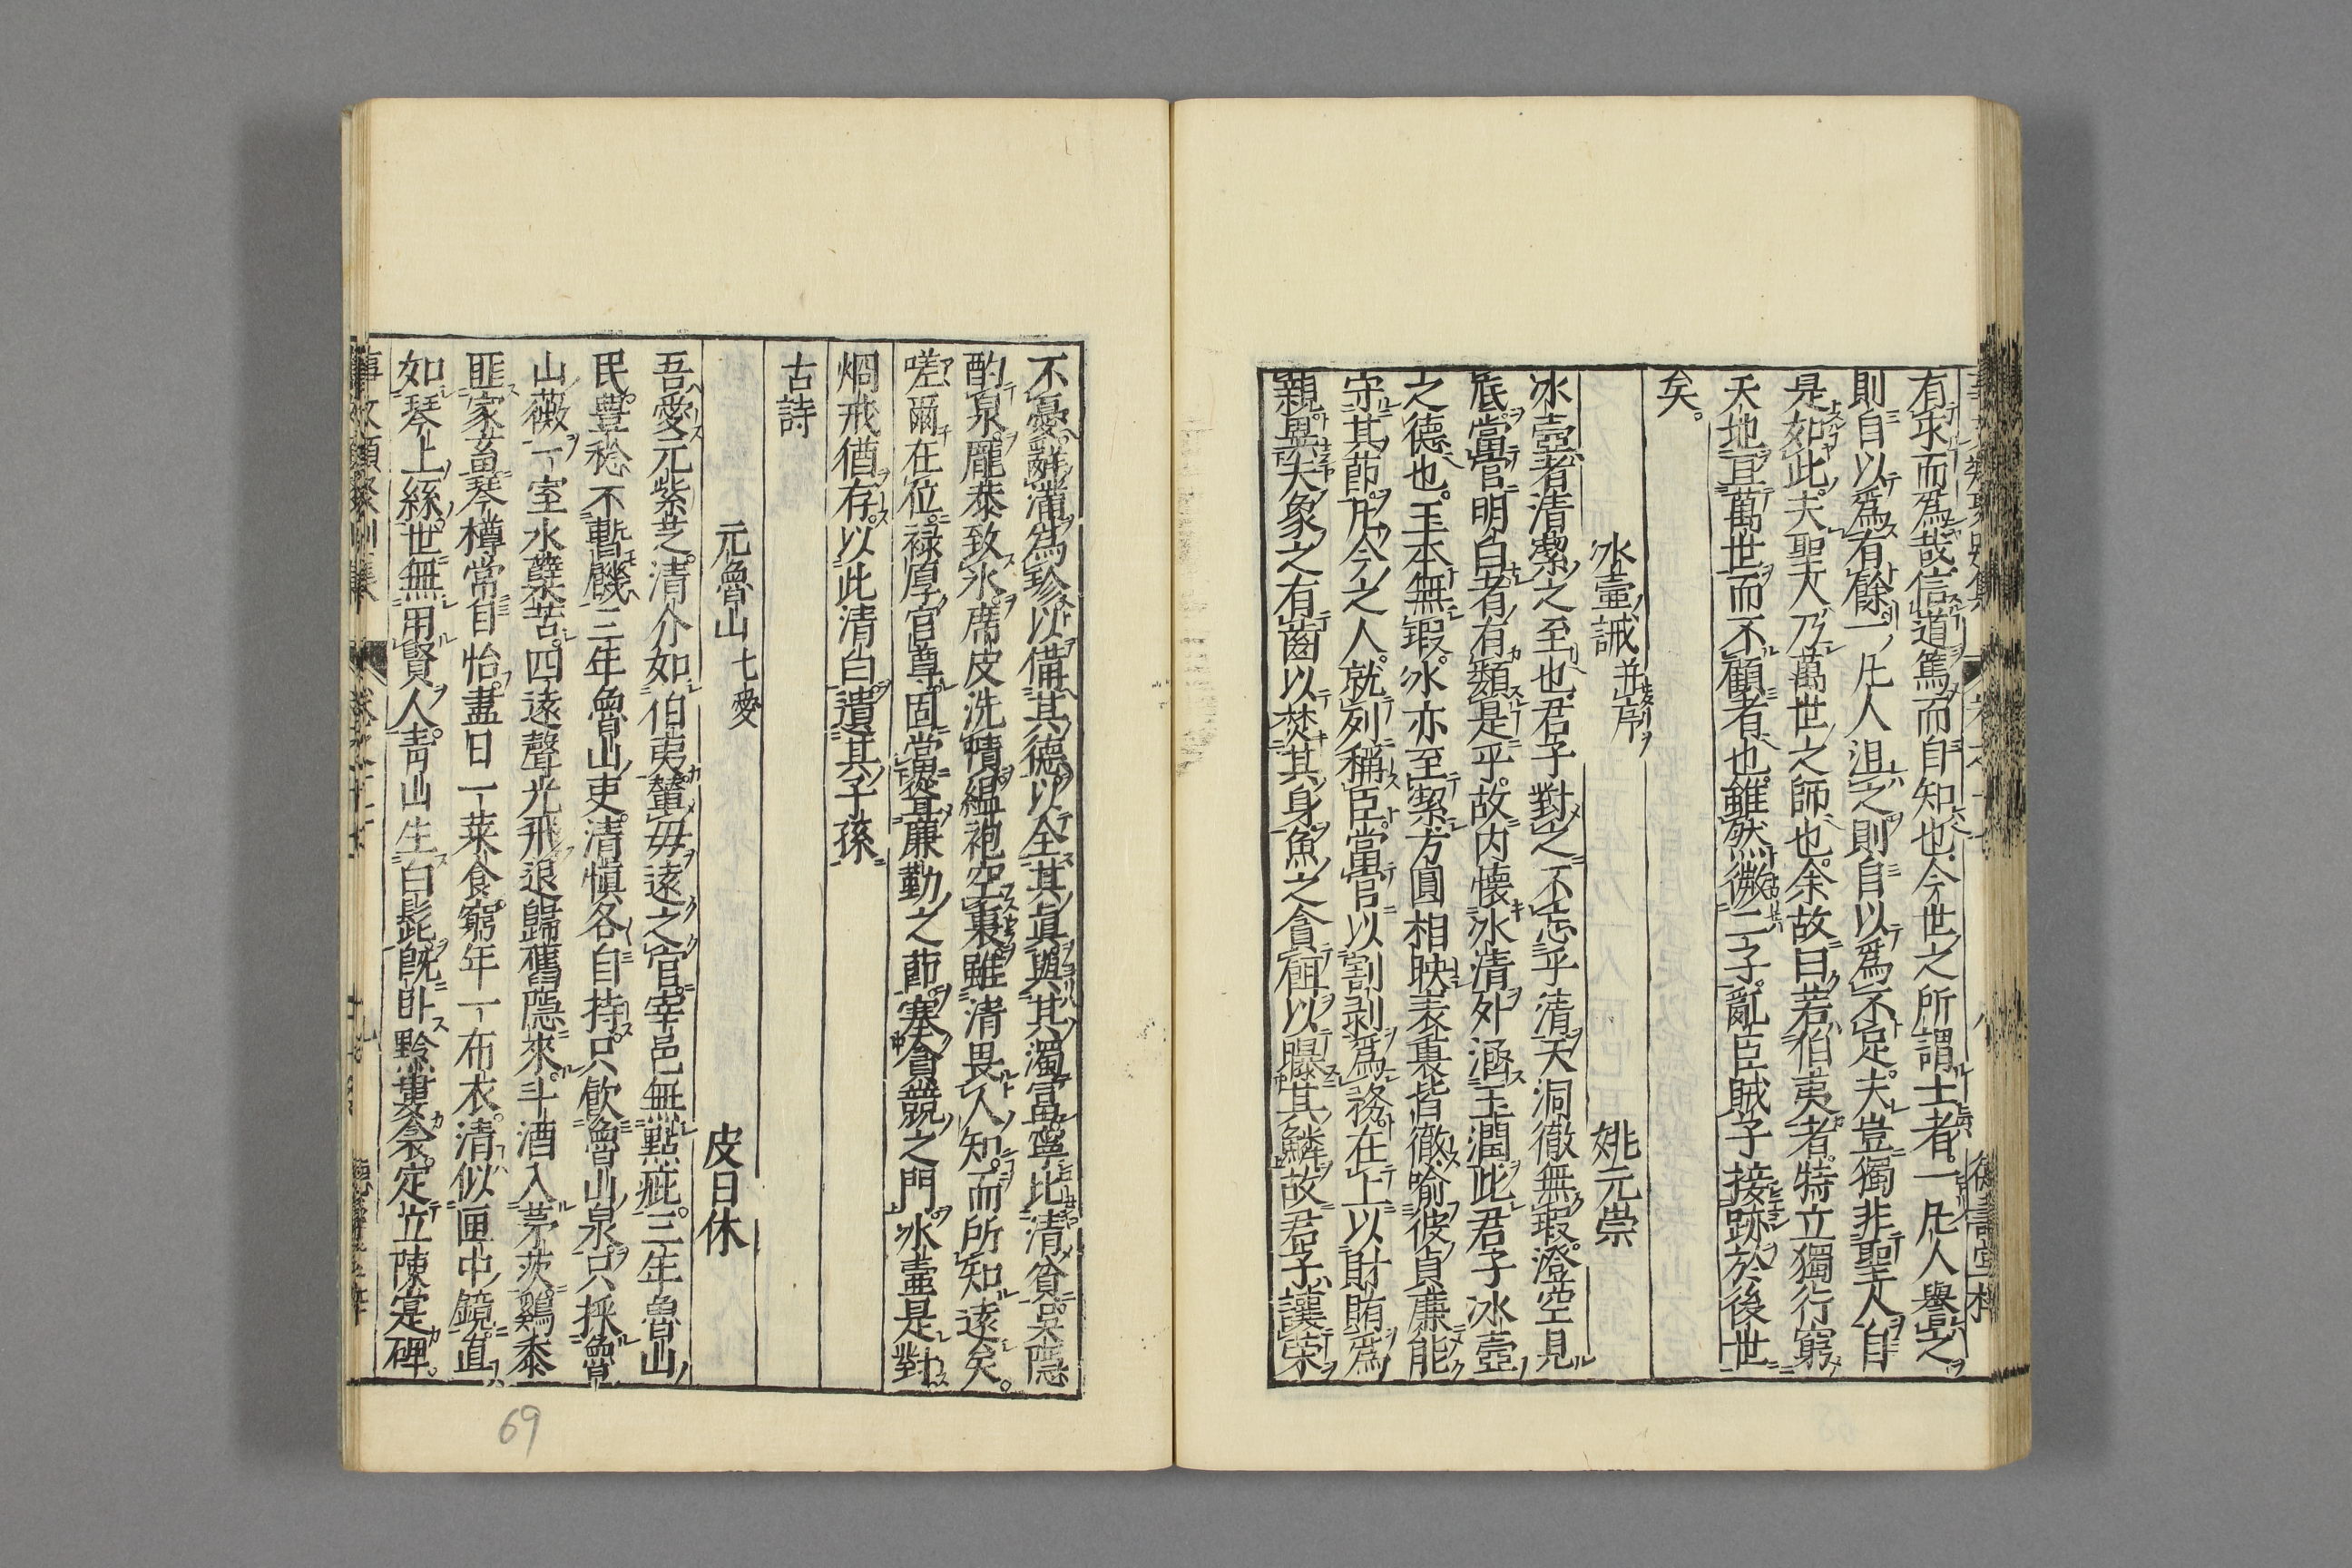 有求而爲哉信道篤而自知也今世之所謂士者一凡人譽之
則自以爲有餘一凡人沮之則自以爲不足夫豈獨非聖人自
是如此夫聖人乃萬世之師也余故曰若伯夷者特立獨行窮
天地亘萬世而不顧者也雖然微二子亂臣賊子接跡於後世
矣
冰壺誡 并序 姚元崇
冰壺者清潔之至也君子對之不忘乎清天洞徹無瑕澄空見
底當官明白者有類是乎故内懐冰清外涵玉潤此君子冰壺
之德也玉本無瑕冰亦至潔方圓相映表裏皆徹喻彼貞廉能
守其莭凢今之人就列稱臣當官以割剥爲務在上以財賄爲
親異大象之有齒以焚其身魚之貪餌以曝其鱗故君子讓榮
不憂辭滿爲珍以備其德以全其真與其濁富寧比清貧吳隱
酌泉龐恭致水席皮洗幘緼袍空裏雖清畏人知而所知遠矣
嗟爾在位禄厚官尊固當聳廉勤之莭塞貪競之門冰壺是對
烱戒猶存以此清白遺其子孫
古詩
元魯山 七愛 皮日休
吾愛元紫芝清介如伯夷輦毋遠之官宰邑無點疵三年魯山
民豊稔不暫饑三年魯山吏清慎各自持只飲魯山泉只採魯
山薇一室水蘖苦四遠聲光飛退歸舊隱來斗酒入茅茨鷄黍
匪家畜琴樽常自怡盡日一菜食窮年一布衣清似匣中鏡直
如琴上絲世無用賢人青山生白髭既卧黔婁衾定立陳寔碑
69